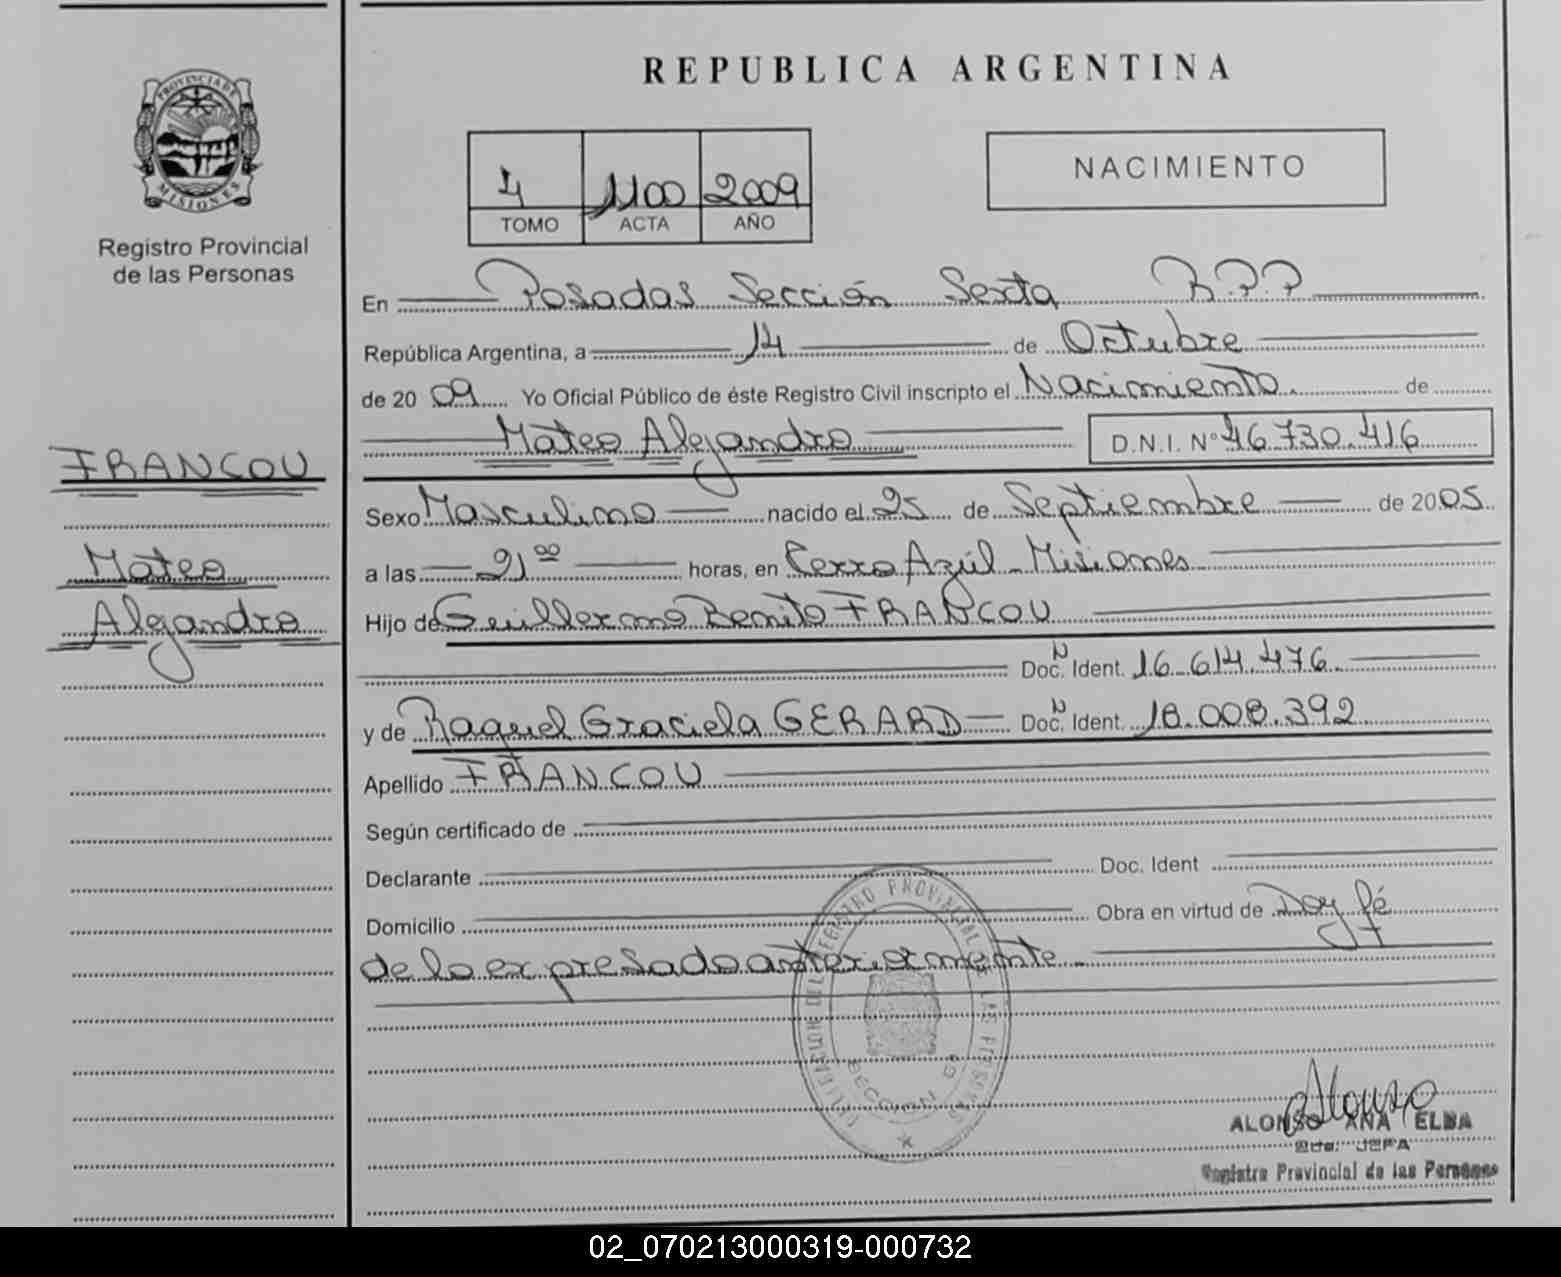 PROVINCIA DE
MISIONES
Registro Provincial
de las Personas
FRANCOU
Mateo
Alejandro
REPUBLICA ARGENTINA
4 1100 2009
TOMO ACTA AÑO
NACIMIENTO
En Posadas Sección Sexta R.P.P
República Argentina, a 14 de Octubre
de 2009 Yo Oficial Público de éste Registro Civil inscripto el Nacimiento. de
Mateo Alejandro D.N.I. N° 46.730.416
Sexo Masculino nacido el 25 de Septiembre de 2005
a las 21 00 horas, en Cerro Azúl - Misiones
Hijo de Guillermo Benito FRANCOU
Doc. N Ident. 16.614.476
y de Raquel Graciela GERARD Doc. N Ident. 18.008.392
Apellido FRANCOU
Según certificado de
Declarante Doc. Ident
Domicilio Obra en virtud de Doy fé
de lo expresado anteriormente.
DEL REGISTRO PROVINCIAL DE LAS PERSONAS
SECCION 6
ALONSO ANA ELBA
JEFA
Registro Provincial de las Personas
02_070213000319-000732